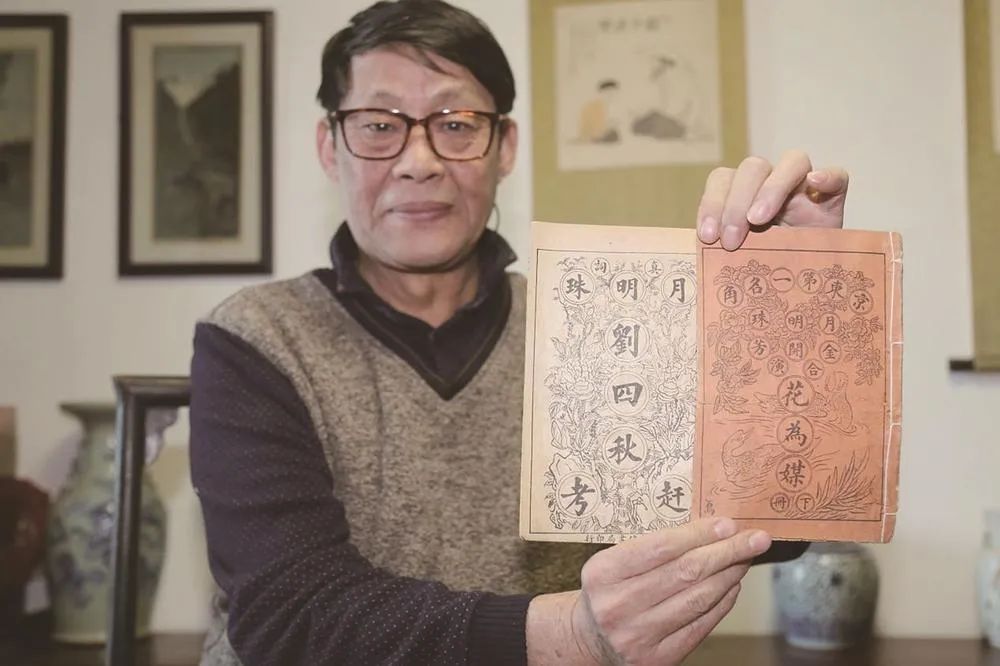 京東第一名角
月明珠
金開芳
合演
花為媒
下冊
真詞
月明珠
劉四秋
趕考
局印行